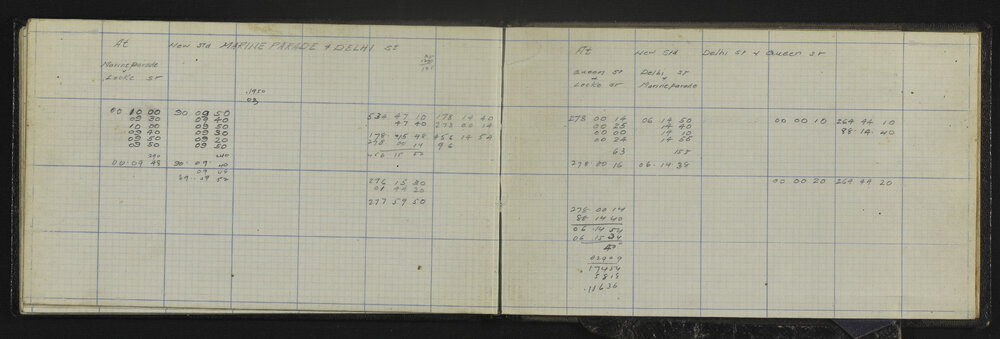 At New Std MARINE PARADE & DELHI St
Marine parade
&
Locke St
.1950
03
00 10 00 90 09 50
09 30 09 40
10 00 09 50
09 40 09 30
09 50 09 20
09 50 09 50
290 240
00.09 48 90.09.40
09 48
89.09 52
534 47 10 178 14 40
47 40 273 00 14
178 45 48 456 14 54
278 00 14 96
456 15 52
276 15 30
01 44 20
277 59 50
At New Std Delhi St & Queen St
Queen St Delhi St
& &
Locke St Marine parade
278 00 14 06 14 50 00 00 10 264 44 10
00 25 14 40 88.14.40
00 00 14 10
00 24 14 55
63 155
278 00 16 06.14 39
00 00 20 264 44 20
278 00 14
88 14 40
06 14 54
06 15 34
40
02909
17454
5818
.11636